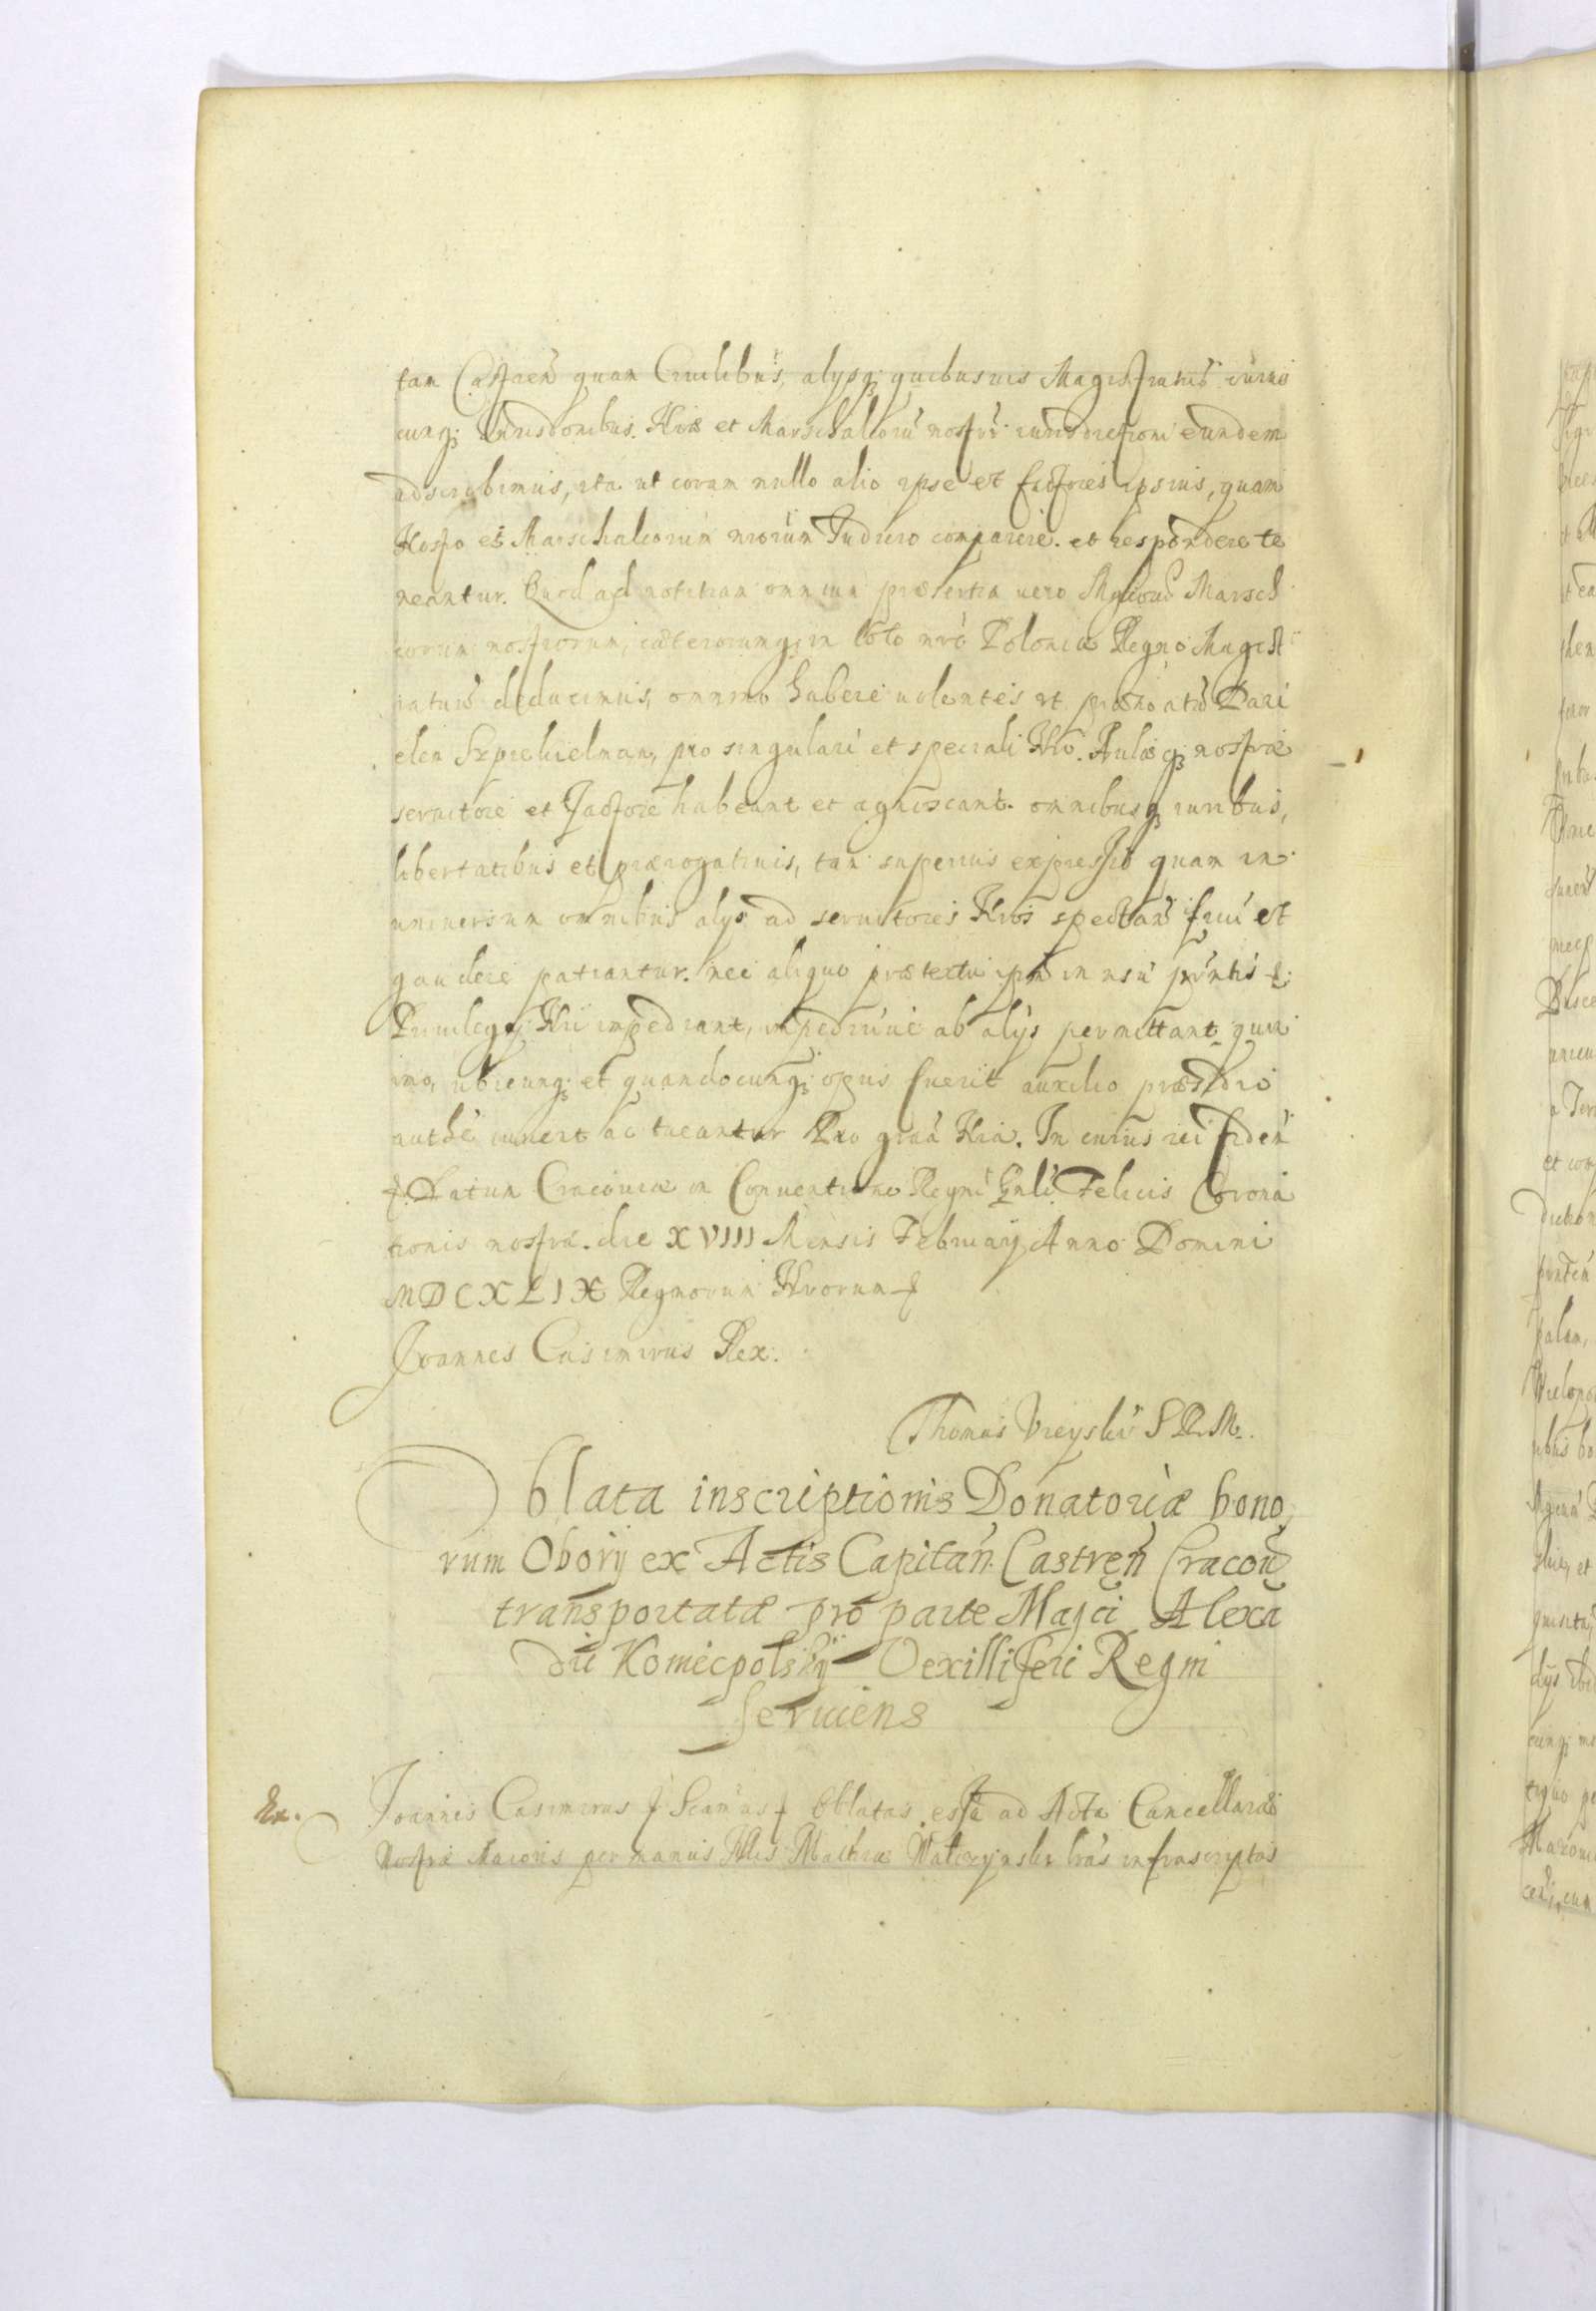 tam Castren̄ quam Ciuilibus, alysq; quibusuis Magistratib̄ cuius
cunq; Iurisdonibus. Nr̄æ et Marschalcorū nostrū iurisdictioni eundem
adscribimus, ita ut coram nullo alio ipse et factores ipsius, quam
Nostro et Marschalcorum nrorum Iudicio comparere et respondere te
neantur. Quod ad notitiam omnium præsertim uero Mgficorū Marschal
corum nostrorum, cæterorumq; in toto nrō Poloniæ Regno Magist
ratuū deducimus, omnino habere uolentes ut prænoatū Dani
elem Szpichielman, pro singulari et speciali Nrō. Aulæq; nostræ
seruitore et Factore habeant et agnoscant. omnibusq; iuribus,
libertatibus et prærogatiuis, tam superius expressis quam in
uniuersum omnibus alys ad seruitores Nros spectan̄ frui et
gaudere patiantur. nec aliquo prætextu ipm in usu prntis
Priuilegij Nri impediant, impediriue ab alijs permittant quin
imo, ubicunq; et quandocunq; opus fuerit auxilio præsidio
authē iuuent ac tueantur Pro gratia Nrā. In cuius rei fidem
Datum Cracouiæ in Conuentione Regni Gnli Felicis Corona
tionis nostræ. die XVIII Mensis February Anno Domini
MDCXLIX Regnorum Nrorum
Joannes Casimirus Rex.
Thomas Vieyski S R. M.
Oblata inscriptionis Donatoriæ bono
rum Obory ex Actis Capitan̄. Castren̄ Cracou
transportatæ pro parte Magci Alexa
dri Koniecpolskij Vexilliferi Regni
seruiens
Ex. Joannes Casimirus Oblatas esse ad Acta Cancellariæ
Nostræ Maioris per manus Nlis Mathiæ lrās infrascriptas